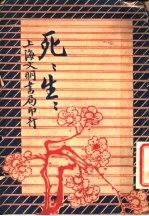 死、生、
上海文明書局印行